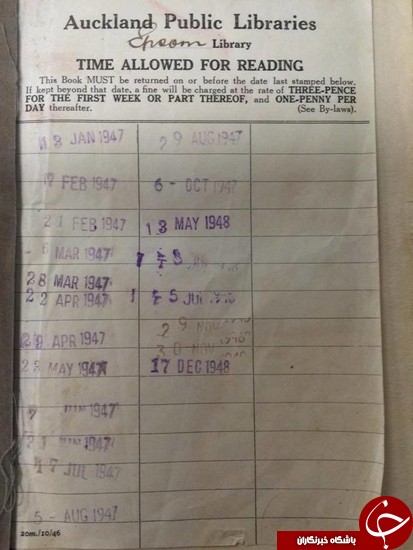 Auckland Public Libraries
Epsom Library
TIME ALLOWED FOR READING
This Book MUST be returned on or before the date last stamped below.
If kept beyond that date, a fine will be charged at the rate of THREE-PENCE
FOR THE FIRST WEEK OR PART THEREOF, and ONE-PENNY PER
DAY thereafter. (See By-laws).
JAN 1947
29 AUG 1947
FEB 1947
6 - OCT 1947
FEB 1947
13 MAY 1948
6 MAR 1947
28 MAR 1947
22 APR 1947
5 JUL
APR 1947
29 NOV
30 NOV
MAY 1947
17 DEC 1948
7 1947
1947
17 JUL 1947
5 - AUG 1947
20m./10/46
باشگاه خبرنگاران